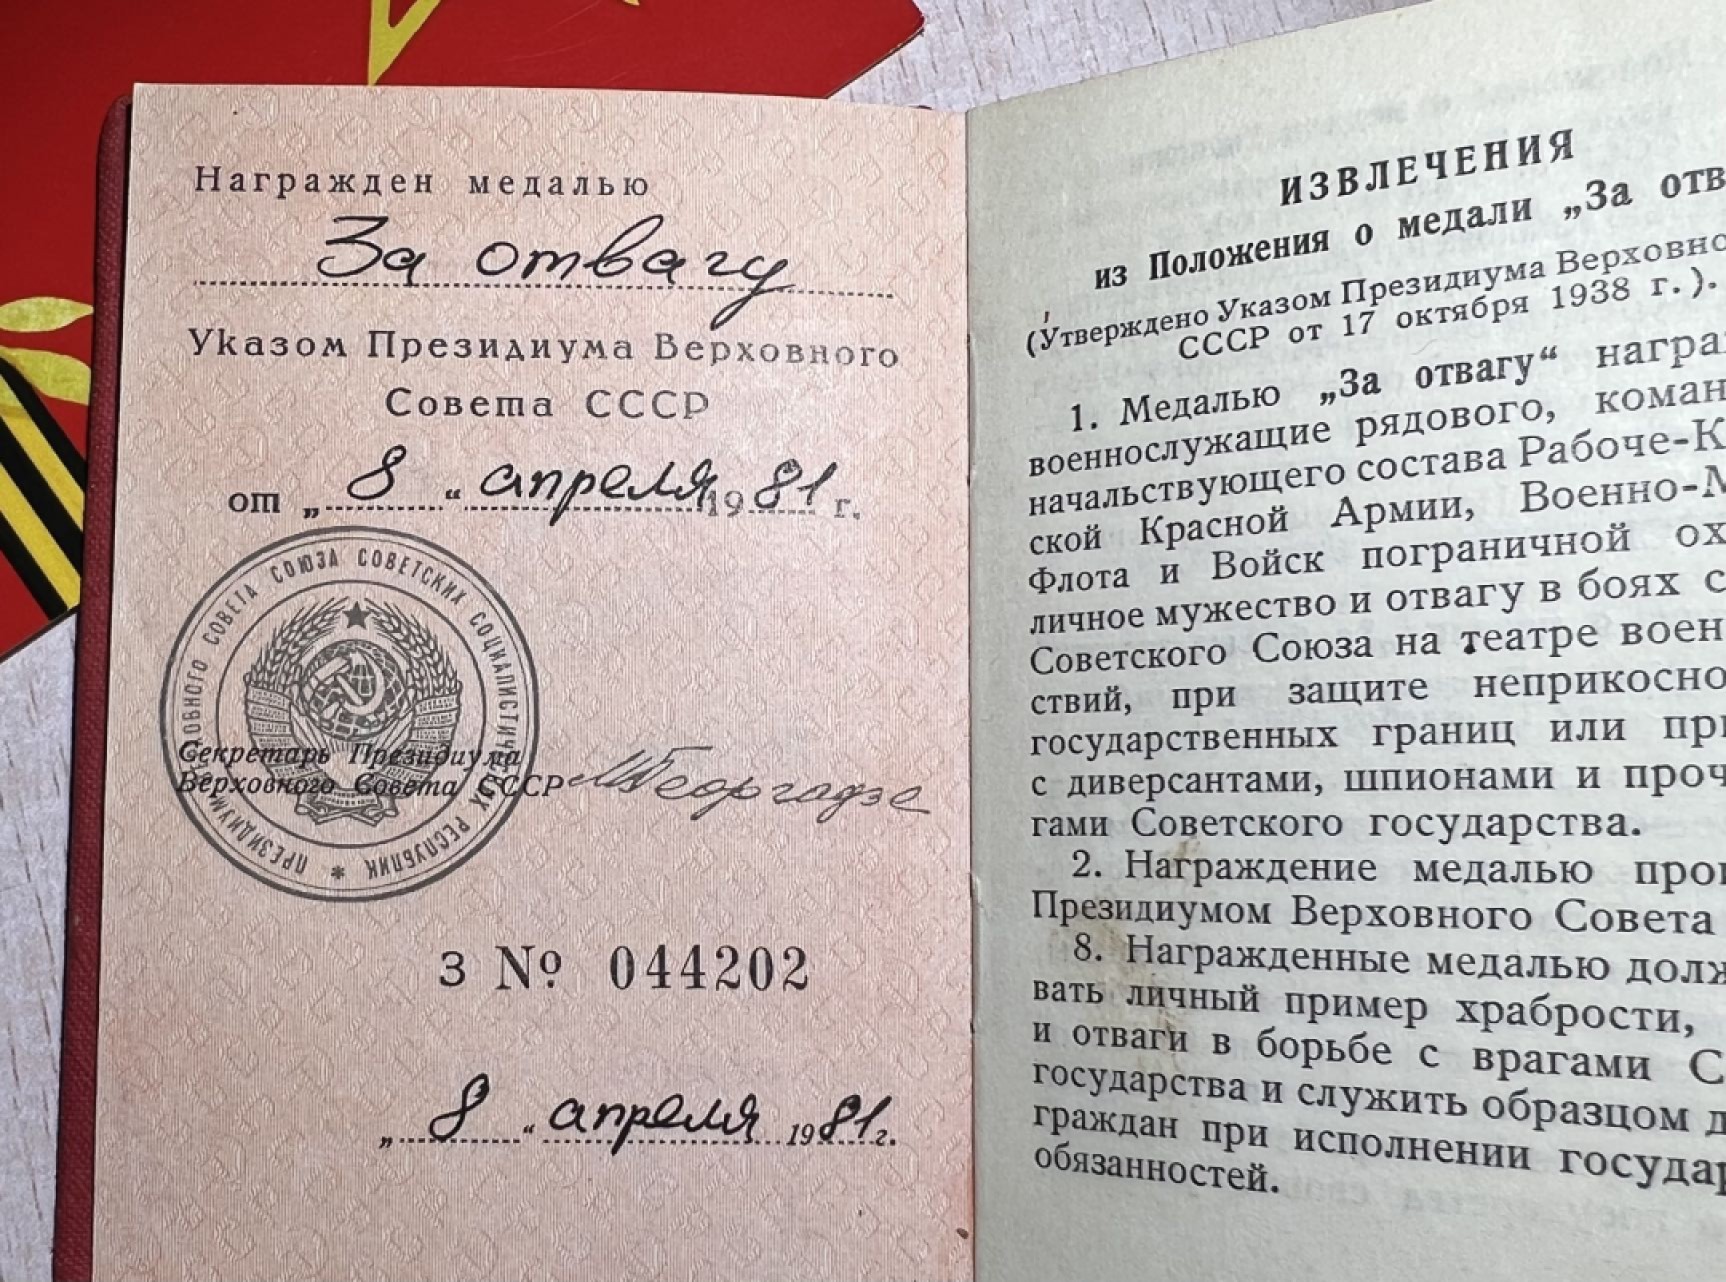 Награжден медалью
За отвагу
Указом Президиума Верховного
Совета СССР
от „ 8 “ апреля 1981 г.
ПРЕЗИДИУМ ВЕРХОВНОГО СОВЕТА СОЮЗА СОВЕТСКИХ СОЦИАЛИСТИЧЕСКИХ РЕСПУБЛИК *
Секретарь Президиума
Верховного Совета СССР МГеоргадзе
З № 044202
„ 8 “ апреля 1981 г.
ИЗВЛЕЧЕНИЯ
из Положения о медали „За отв
(Утверждено Указом Президиума Верховно
СССР от 17 октября 1938 г.).
1. Медалью „За отвагу“ награ
военнослужащие рядового, коман
начальствующего состава Рабоче-К
ской Красной Армии, Военно-М
Флота и Войск пограничной ох
личное мужество и отвагу в боях с
Советского Союза на театре воен
ствий, при защите неприкосно
государственных границ или при
с диверсантами, шпионами и проч
гами Советского государства.
2. Награждение медалью прои
Президиумом Верховного Совета
8. Награжденные медалью долж
вать личный пример храбрости,
и отваги в борьбе с врагами С
государства и служить образцом д
граждан при исполнении государ
обязанностей.